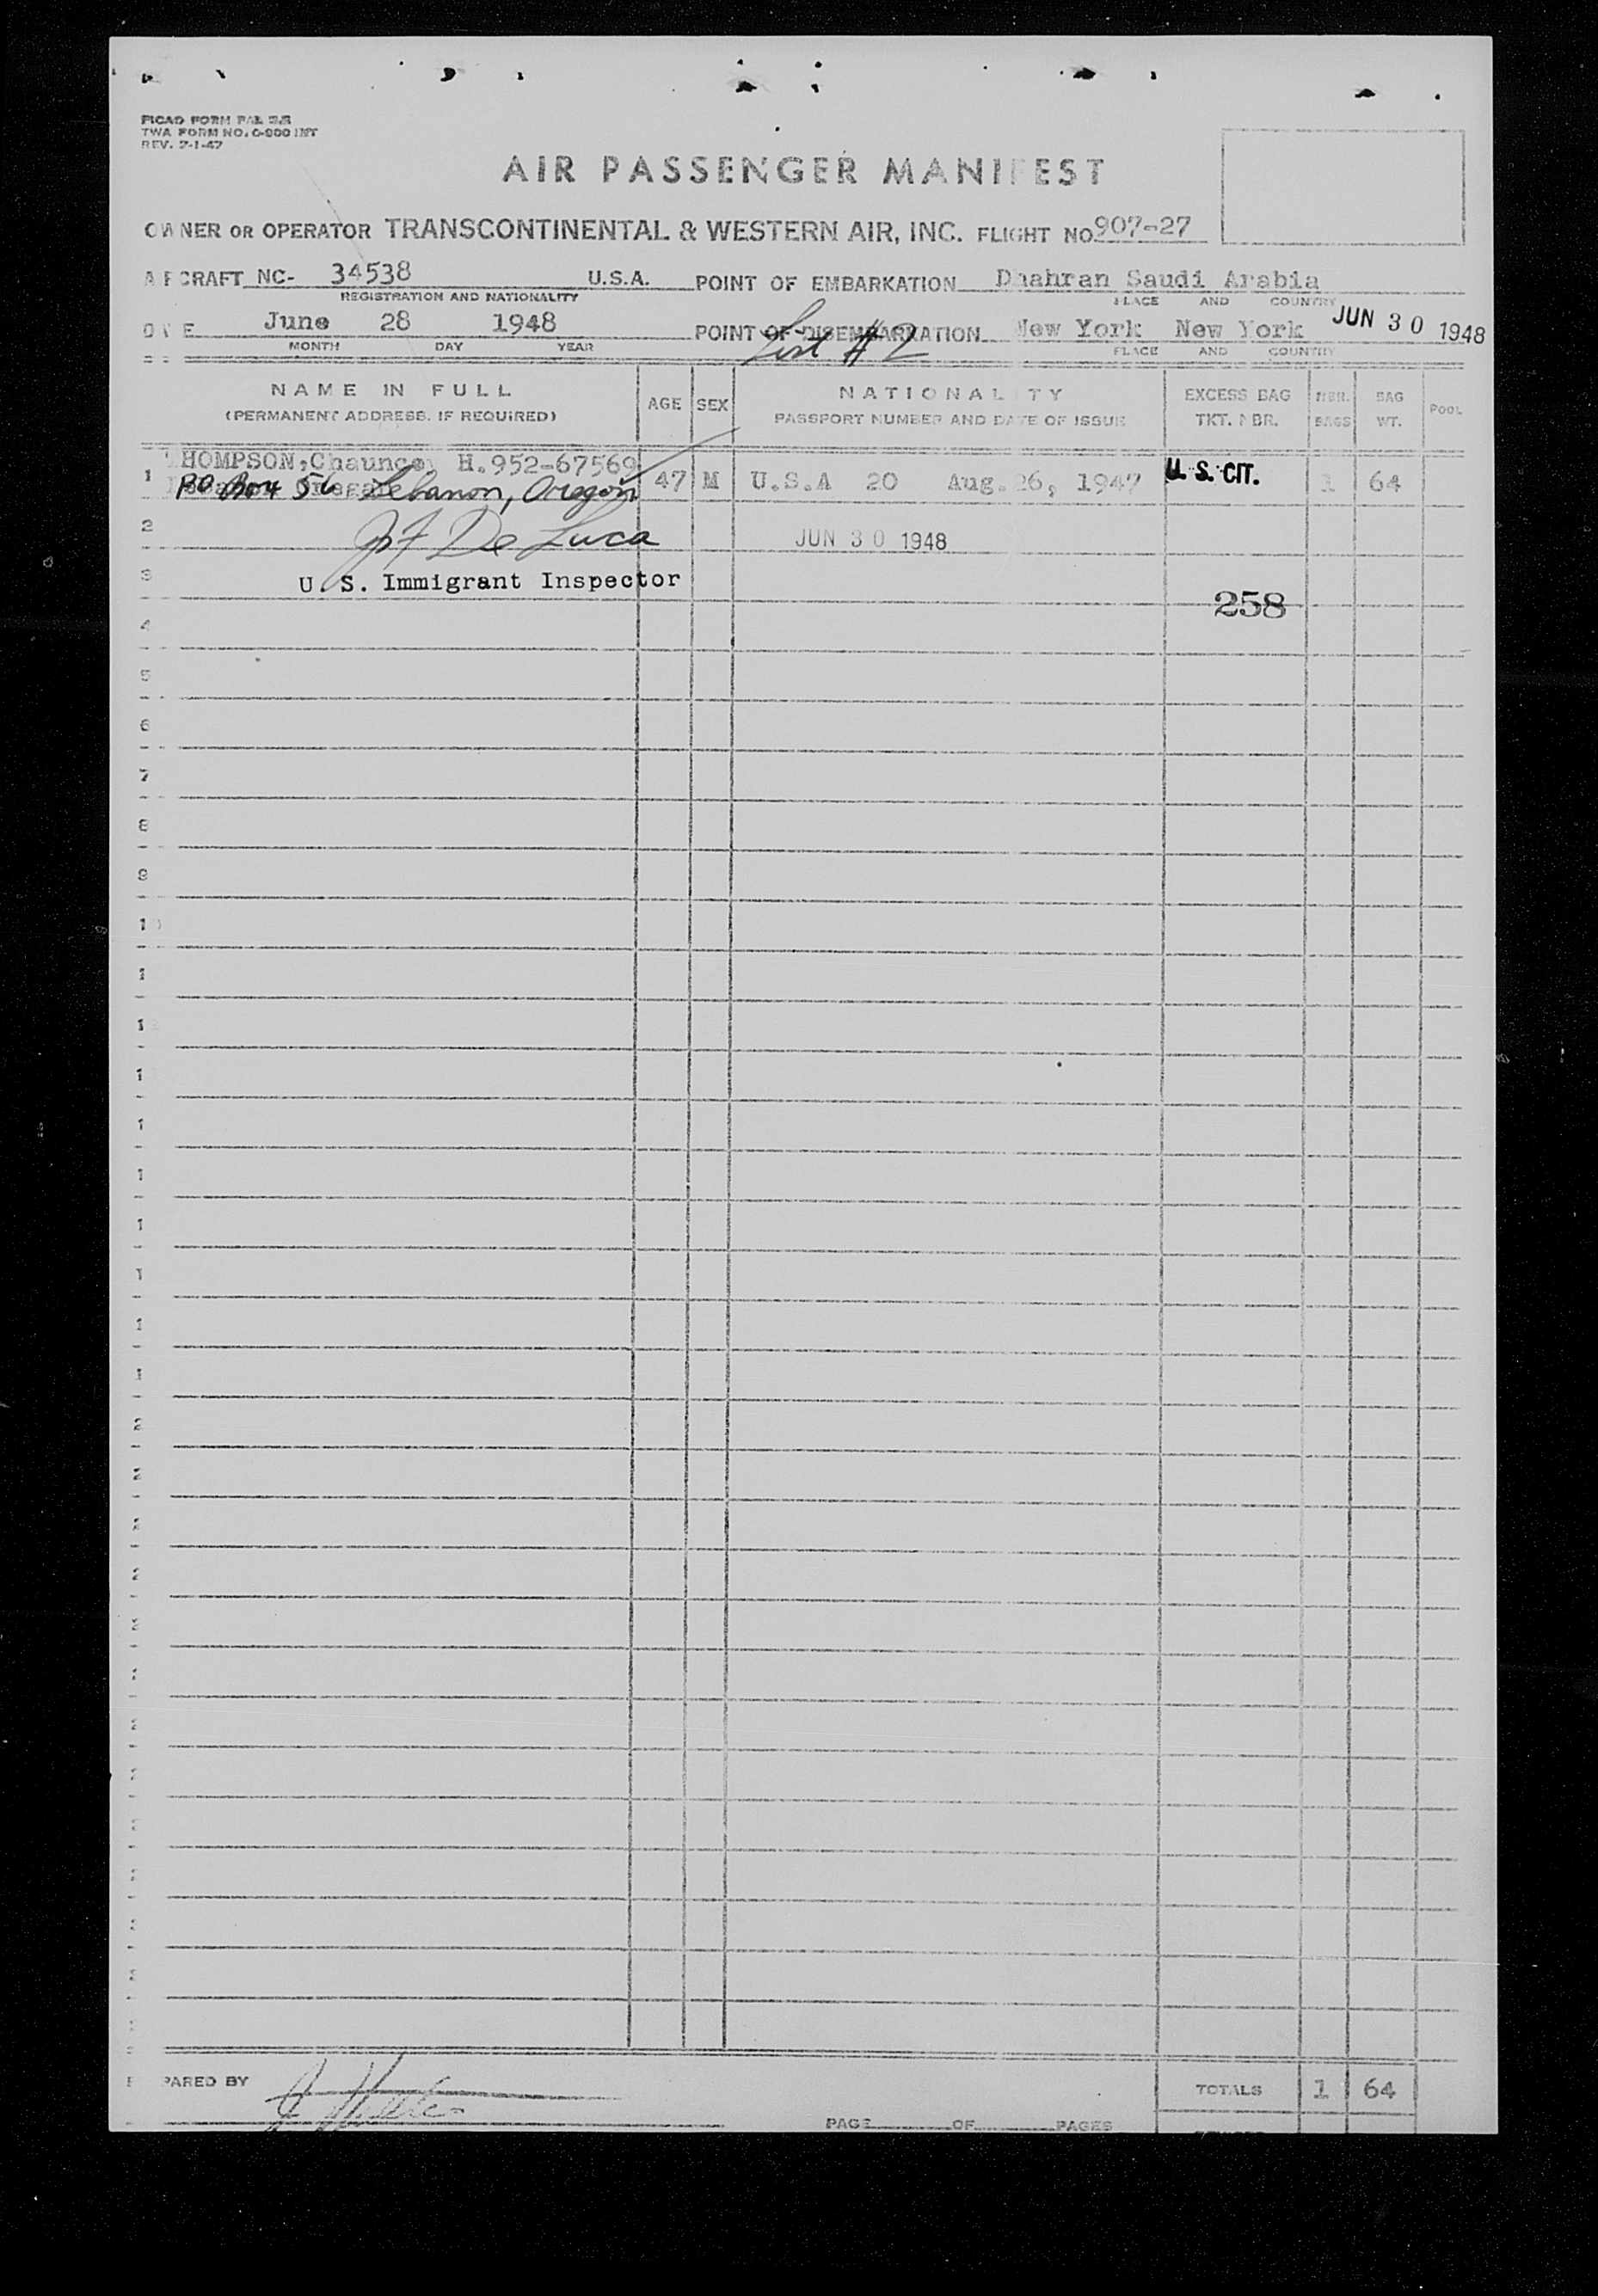 PICAO FORM PAL
TWA FORM NO. O-800 INT
REV. 7-1-47
AIR PASSENGER MANIFEST
OWNER OR OPERATOR TRANSCONTINENTAL & WESTERN AIR, INC. FLIGHT NO. 907-27
AIRCRAFT NC- 34538 U.S.A. POINT OF EMBARKATION Dhahran Saudi Arabia
REGISTRATION AND NATIONALITY PLACE AND COUNTRY
DATE June 28 1948 POINT OF DISEMBARKATION New York New York JUN 30 1948
MONTH DAY YEAR List #2 PLACE AND COUNTRY
NAME IN FULL AGE SEX NATIONALITY EXCESS BAG NBR. BAG POOL
(PERMANENT ADDRESS, IF REQUIRED) PASSPORT NUMBER AND DATE OF ISSUE TKT. NBR. BAGS WT.
THOMPSON, Chauncey H. 952-67569
1 PO Box 56 Lebanon, Oregon 47 M U.S.A 20 Aug. 26, 1947 U.S. CIT. 1 64
2 De Luca JUN 30 1948
3 U.S. Immigrant Inspector
258
4
5
6
7
8
9
1
1
1
1
1
1
1
1
1
1
2
2
2
2
2
PARED BY TOTALS 1 64
PAGE OF PAGES